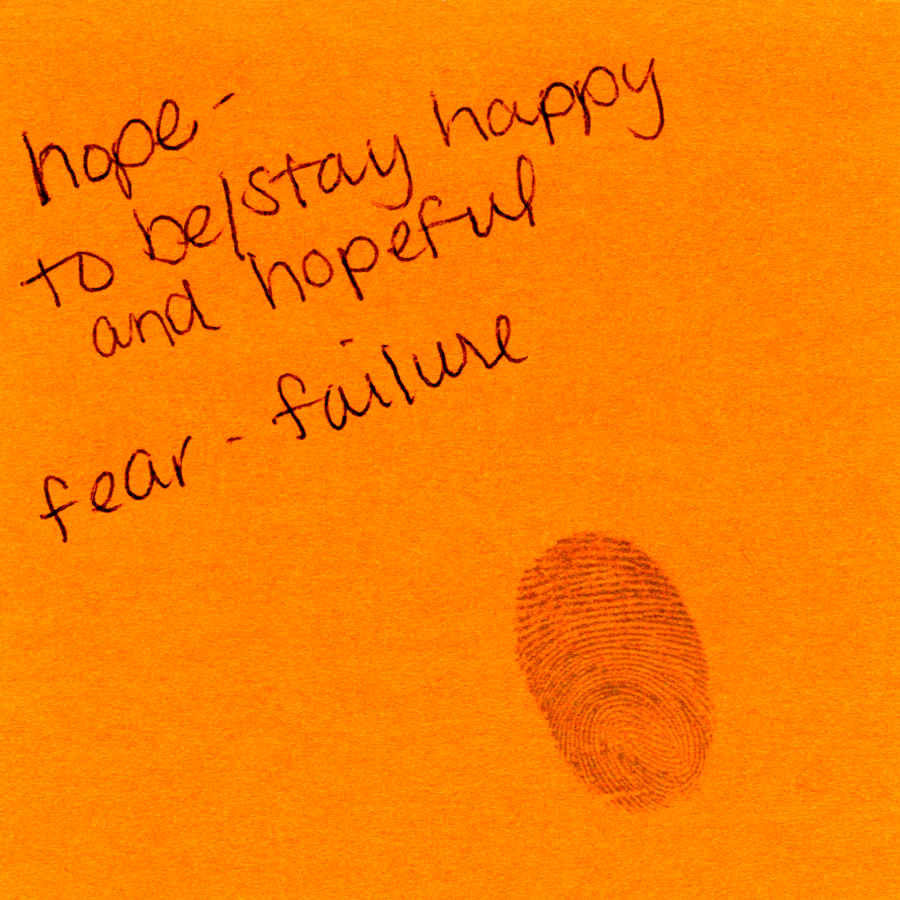 hope-
to be/stay happy
and hopeful
fear - failure